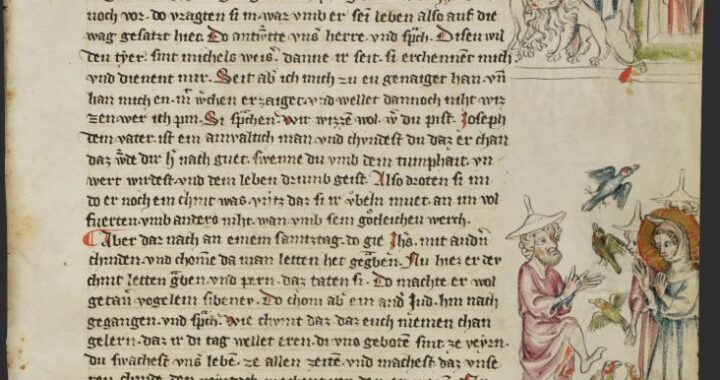 noch vor. do vragten si in. war vmb er seī leben also auf die
wag gesatzt hiet. Do antwrtte vnsˀ herre. vnd sp̄ch. Disev wil
den tyer. sint michels weisˀ. danne ir seit. si erchennent mich
vnd dienent mir. Seit ab ich mich zu eu genaiget han. vn̄
han mich en. in wͦchen erzaiget. vnd wellet dannoch niht wiz
zen wer ich pin. Si sp̄chen. Wir wizzē wol. wˀ du pist. Joseph
dem vater. ist ein anvaltich man. vnd chyndest du daz er chan
daz wˀde dir hˀ nach guet. swenne du vmb dein tumphait. vn̄
wert wirdest. vnd dein leben drumb geist. Also droten si im
do er noch ein chint was. vntz daz si ir vͤbeln muet. an im vol
fuerten. vmb anders niht. wan vmb sein gotleichen werch.
Aber dar nach an einem samtztag. do gie Jh̄s. mit andn̄
chinden. vnd chome da man letten het gegˀben. Nu hiez er der
chint letten gˀben. vnd pern. daz taten si. Do machte er wol
getan vogelein sibenev. Do chom ab ein andˀ Jud. hin nach
gegangen. vnd sp̄ch. Wie chvmt daz daz euch niemen chan
gelern. daz ir di tag wellet eren. di vns geboten sint. ze veyrn.
du swachest vnsˀ lebē. ze allen zeitē. vnd machest daz vnse